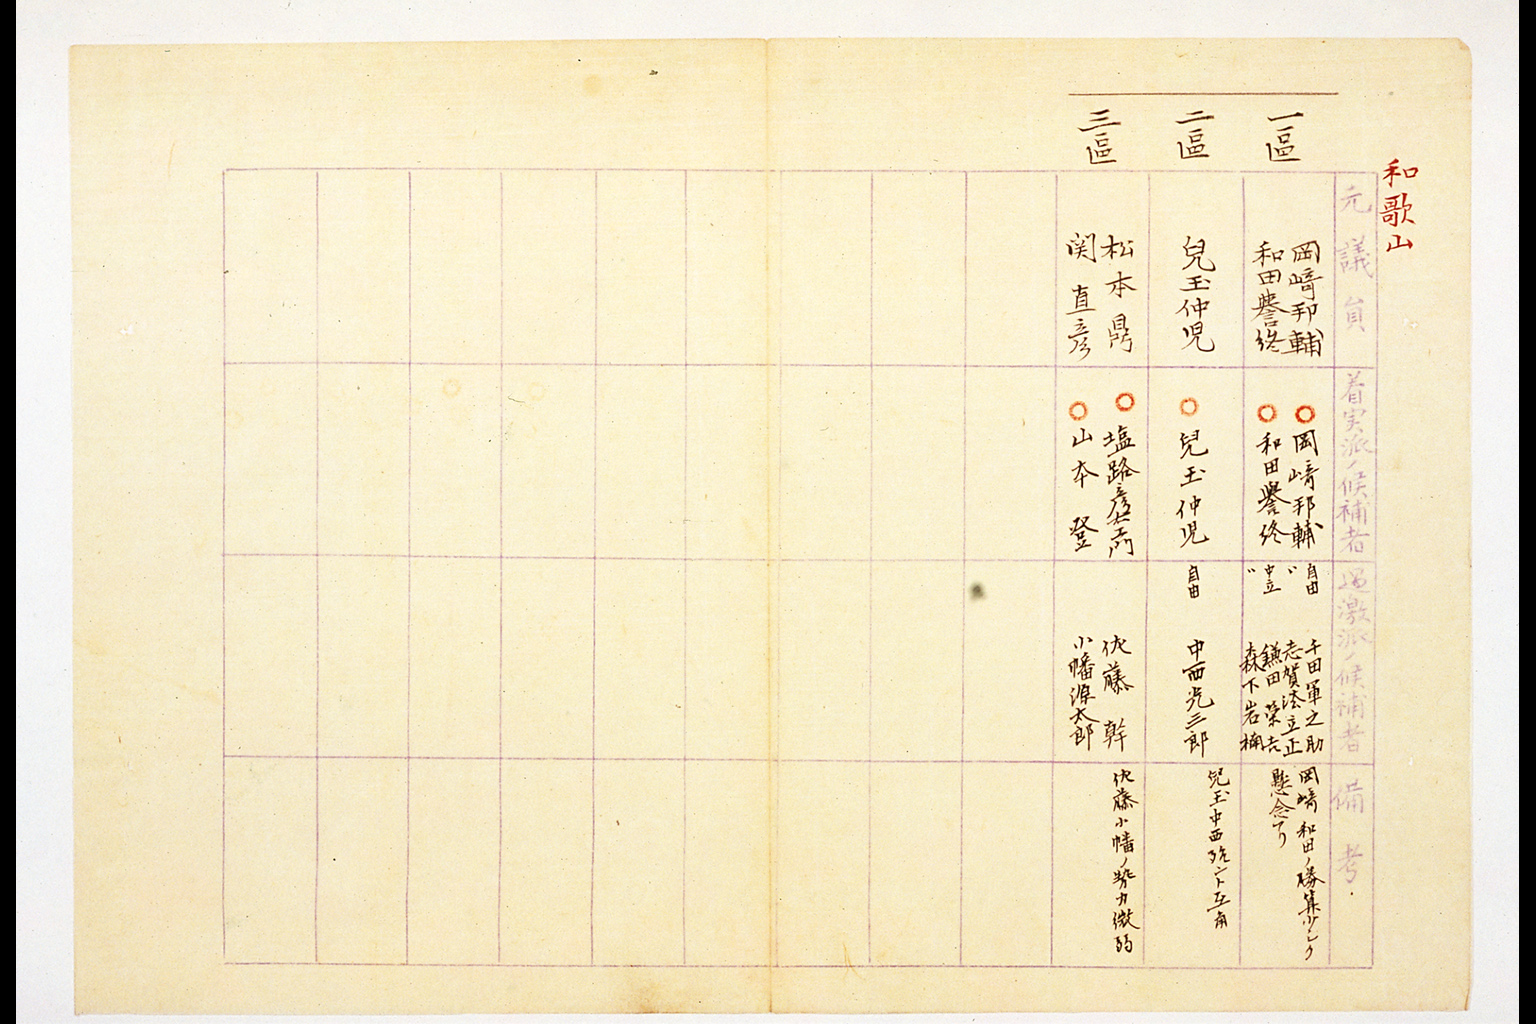 和歌山
元議員
着実派ノ候補者
過激派ノ候補者
備考
一區
岡﨑邦輔
和田譽終
岡﨑邦輔
和田譽終
自由
〃
中立
〃
千田軍之助
志賀法立正
鎌田榮吉
森下岩楠
岡﨑和田ノ勝算少シク
懸念アリ
二區
兒玉仲児
兒玉仲児
自由
中西光三郎
兒玉中西殆ント互角
三區
松本鼎
関直彦
塩路彦右エ門
山本登
佐藤幹
小幡源太郎
佐藤小幡ノ勢力微弱